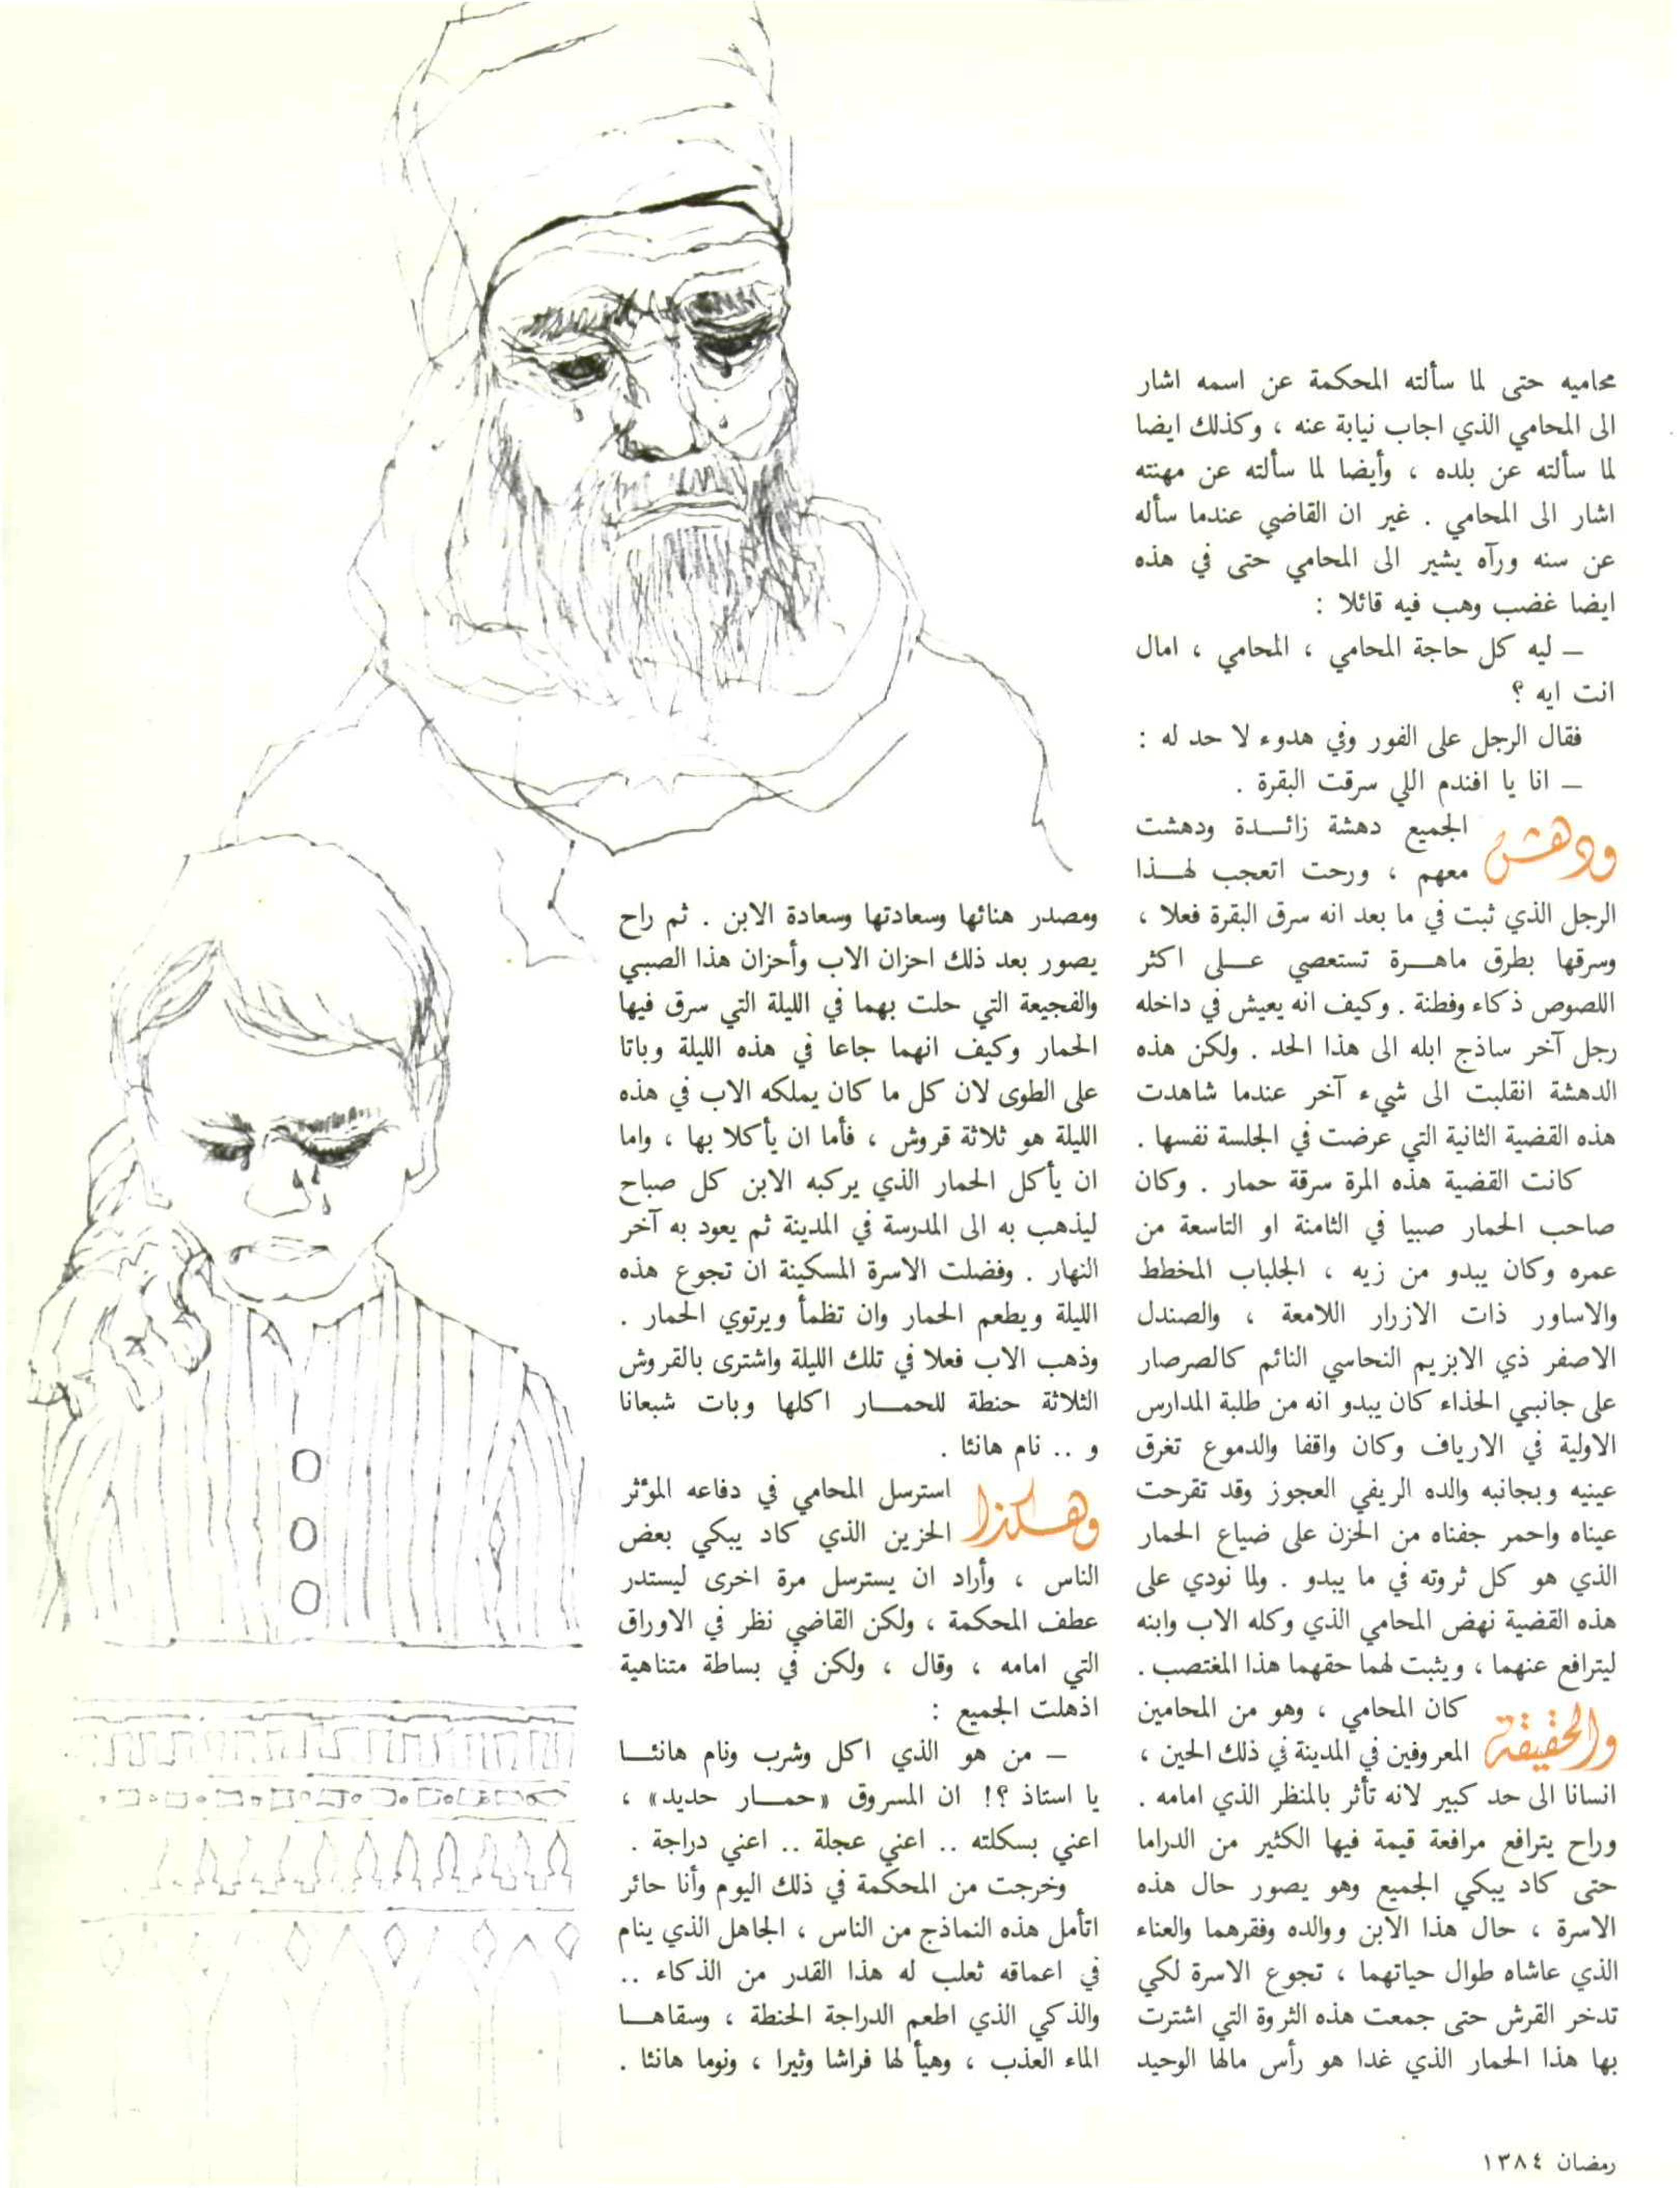 محاميه حتى لما سألته المحكمة عن اسمه اشار
الى المحامي الذي اجاب نيابة عنه ، وكذلك ايضا
لما سألته عن بلده ، وأيضا لما سألته عن مهنته
اشار الى المحامي . غير ان القاضي عندما سأله
عن سنه ورآه يشير الى المحامي حتى في هذه
ايضا غضب وهب فيه قائلا :
– ليه كل حاجة المحامي ، المحامي ، امال
انت ايه ؟
فقال الرجل على الفور وفي هدوء لا حد له :
– انا يا افندم اللي سرقت البقرة .
ودهش الجميع دهشة زائـــدة ودهشت
معهم ، ورحت اتعجب لهـــذا
الرجل الذي ثبت في ما بعد انه سرق البقرة فعلا ،
وسرقها بطرق ماهـــرة تستعصي عـــلى اكثر
اللصوص ذكاء وفطنة . وكيف انه يعيش في داخله
رجل آخر ساذج ابله الى هذا الحد . ولكن هذه
الدهشة انقلبت الى شيء آخر عندما شاهدت
هذه القضية الثانية التي عرضت في الجلسة نفسها .
كانت القضية هذه المرة سرقة حمار . وكان
صاحب الحمار صبيا في الثامنة او التاسعة من
عمره وكان يبدو من زيه ، الجلباب المخطط
والاساور ذات الازرار اللامعة ، والصندل
الاصفر ذي الابزيم النحاسي النائم كالصرصار
على جانبي الحذاء كان يبدو انه من طلبة المدارس
الاولية في الارياف وكان واقفا والدموع تغرق
عينيه وبجانبه والده الريفي العجوز وقد تقرحت
عيناه واحمر جفناه من الحزن على ضياع الحمار
الذي هو كل ثروته في ما يبدو . ولما نودي على
هذه القضية نهض المحامي الذي وكله الاب وابنه
ليترافع عنهما ، ويثبت لهما حقهما هذا المغتصب .
والحقيقة كان المحامي ، وهو من المحامين
المعروفين في المدينة في ذلك الحين ،
انسانا الى حد كبير لانه تأثر بالمنظر الذي امامه .
وراح يترافع مرافعة قيمة فيها الكثير من الدراما
حتى كاد يبكي الجميع وهو يصور حال هذه
الاسرة ، حال هذا الابن ووالده وفقرهما والعناء
الذي عاشاه طوال حياتهما ، تجوع الاسرة لكي
تدخر القرش حتى جمعت هذه الثروة التي اشترت
بها هذا الحمار الذي غدا هو رأس مالها الوحيد
ومصدر هنائها وسعادتها وسعادة الابن . ثم راح
يصور بعد ذلك احزان الاب وأحزان هذا الصبي
والفجيعة التي حلت بهما في الليلة التي سرق فيها
الحمار وكيف انهما جاعا في هذه الليلة وباتا
على الطوى لان كل ما كان يملكه الاب في هذه
الليلة هو ثلاثة قروش ، فأما ان يأكلا بها ، واما
ان يأكل الحمار الذي يركبه الابن كل صباح
ليذهب به الى المدرسة في المدينة ثم يعود به آخر
النهار . وفضلت الاسرة المسكينة ان تجوع هذه
الليلة ويطعم الحمار وان تظمأ ويرتوي الحمار .
وذهب الاب فعلا في تلك الليلة واشترى بالقروش
الثلاثة حنطة للحمـــار اكلها وبات شبعانا
و .. نام هانئا .
وهـكذا استرسل المحامي في دفاعه المؤثر
الحزين الذي كاد يبكي بعض
الناس ، وأراد ان يسترسل مرة اخرى ليستدر
عطف المحكمة ، ولكن القاضي نظر في الاوراق
التي امامه ، وقال ، ولكن في بساطة متناهية
اذهلت الجميع :
– من هو الذي اكل وشرب ونام هانئـــا
يا استاذ ؟! ان المسروق «حمـــار حديد» ،
اعني بسكلته .. اعني عجلة .. اعني دراجة .
وخرجت من المحكمة في ذلك اليوم وأنا حائر
اتأمل هذه النماذج من الناس ، الجاهل الذي ينام
في اعماقه ثعلب له هذا القدر من الذكاء ..
والذكي الذي اطعم الدراجة الحنطة ، وسقاهـــا
الماء العذب ، وهيأ لها فراشا وثيرا ، ونوما هانئا .
رمضان ١٣٨٤